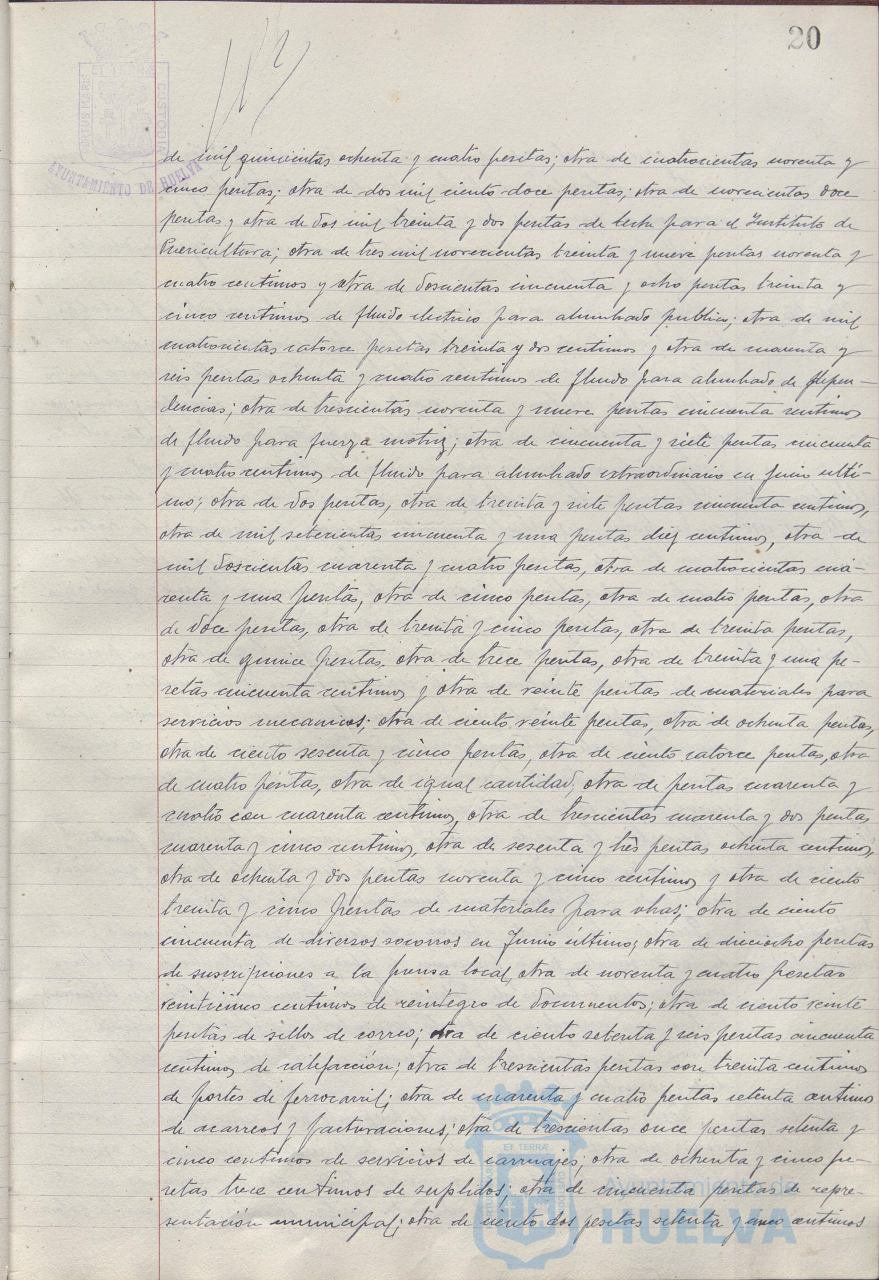 20
PORTUS MARIS CUSTODIA
AYUNTAMIENTO DE HUELVA
de mil quinientas ochenta y cuatro pesetas; otra de cuatrocientas noventa y
cinco pesetas; otra de dos mil ciento doce pesetas; otra de novecientas doce
pesetas y otra de dos mil treinta y dos pesetas de leche para el Instituto de
Puericultura; otra de tres mil novecientas treinta y nueve pesetas noventa y
cuatro centimos y otra de doscientas cincuenta y ocho pesetas treinta y
cinco centimos de fluido electrico para alumbrado publico; otra de mil
cuatrocientas catorce pesetas treinta y dos centimos y otra de cuarenta y
seis pesetas ochenta y cuatro centimos de fluido para alumbrado de Depen-
dencias; otra de trescientas noventa y nueve pesetas cincuenta centimos
de fluido para fuerza motriz; otra de cincuenta y siete pesetas cincuenta
y cuatro centimos de fluido para alumbrado extraordinario en Junio ulti-
mo; otra de dos pesetas, otra de treinta y siete pesetas cincuenta centimos,
otra de mil setecientas cincuenta y una pesetas diez centimos, otra de
mil doscientas cuarenta y cuatro pesetas, otra de cuatrocientas cua-
renta y una pesetas, otra de cinco pesetas, otra de cuatro pesetas, otra
de doce pesetas, otra de treinta y cinco pesetas, otra de treinta pesetas,
otra de quince pesetas, otra de trece pesetas, otra de treinta y una pe-
setas cincuenta centimos y otra de veinte pesetas de materiales para
servicios mecanicos; otra de ciento veinte pesetas, otra de ochenta pesetas,
otra de ciento sesenta y cinco pesetas, otra de ciento catorce pesetas, otra
de cuatro pesetas, otra de igual cantidad, otra de pesetas cuarenta y
cuatro con cuarenta centimos, otra de trescientas cuarenta y dos pesetas
cuarenta y cinco centimos, otra de sesenta y tres pesetas ochenta centimos,
otra de ochenta y dos pesetas noventa y cinco centimos y otra de ciento
treinta y cinco pesetas de materiales para obras; otra de ciento
cincuenta de diversos socorros en Junio último; otra de dieciocho pesetas
de suscripciones a la prensa local, otra de noventa y cuatro pesetas
veinticinco centimos de reintegro de documentos; otra de ciento veinte
pesetas de sellos de correo; otra de ciento setenta y seis pesetas cincuenta
centimos de calefacción; otra de trescientas pesetas con treinta centimos
de portes de ferrocarril; otra de cuarenta y cuatro pesetas setenta centimos
de acarreos y facturaciones; otra de trescientas once pesetas setenta y
cinco centimos de servicios de carruajes; otra de ochenta y cinco pe-
setas trece centimos de suplidos; otra de cincuenta pesetas de repre-
sentación municipal; otra de ciento dos pesetas setenta y cinco centimos
ET TERRÆ
Ayuntamiento de
HUELVA